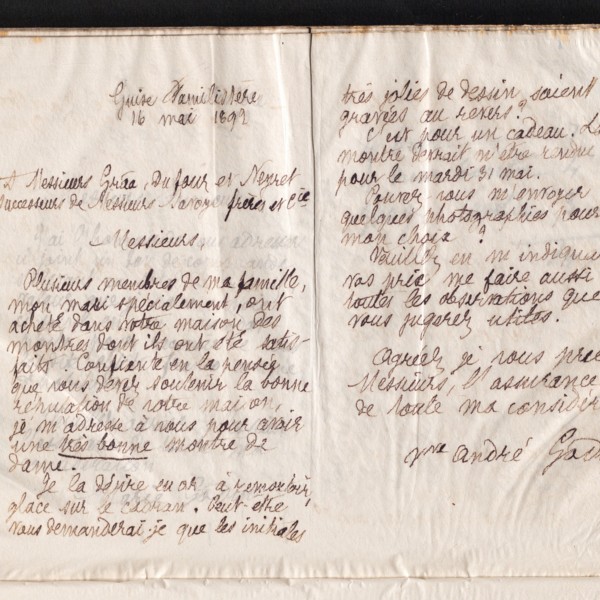 Guise Familistère
16 mai 1892
A Messieurs Grãa, Dufour et Neyret
successeurs de Messieurs Savoye frères et Cie
Messieurs
Plusieurs membres de ma famille,
mon mari spécialement, ont
acheté dans votre maison des
montres dont ils ont été satis-
faits. Confiante en la pensée
que vous devez soutenir la bonne
réputation de votre maison,
je m'adresse à vous pour avoir
une très bonne montre de
dame.
Je la désire en or à remontoir,
glace sur le cadran. Peut-être
vous demanderai-je que les initiales
très jolies de dessin, soient
gravées au revers?
C'est pour un cadeau. La
montre devrait m'être rendue
pour le mardi 31 mai.
Pouvez vous m'envoyer
quelques photographies pour
mon choix?
Veuillez en m'indiqu
vos prix me faire aussi
toutes les observations que
vous jugerez utiles.
Agréez je vous prie
Messieurs, l'assurance
de toute ma considér
Vve André